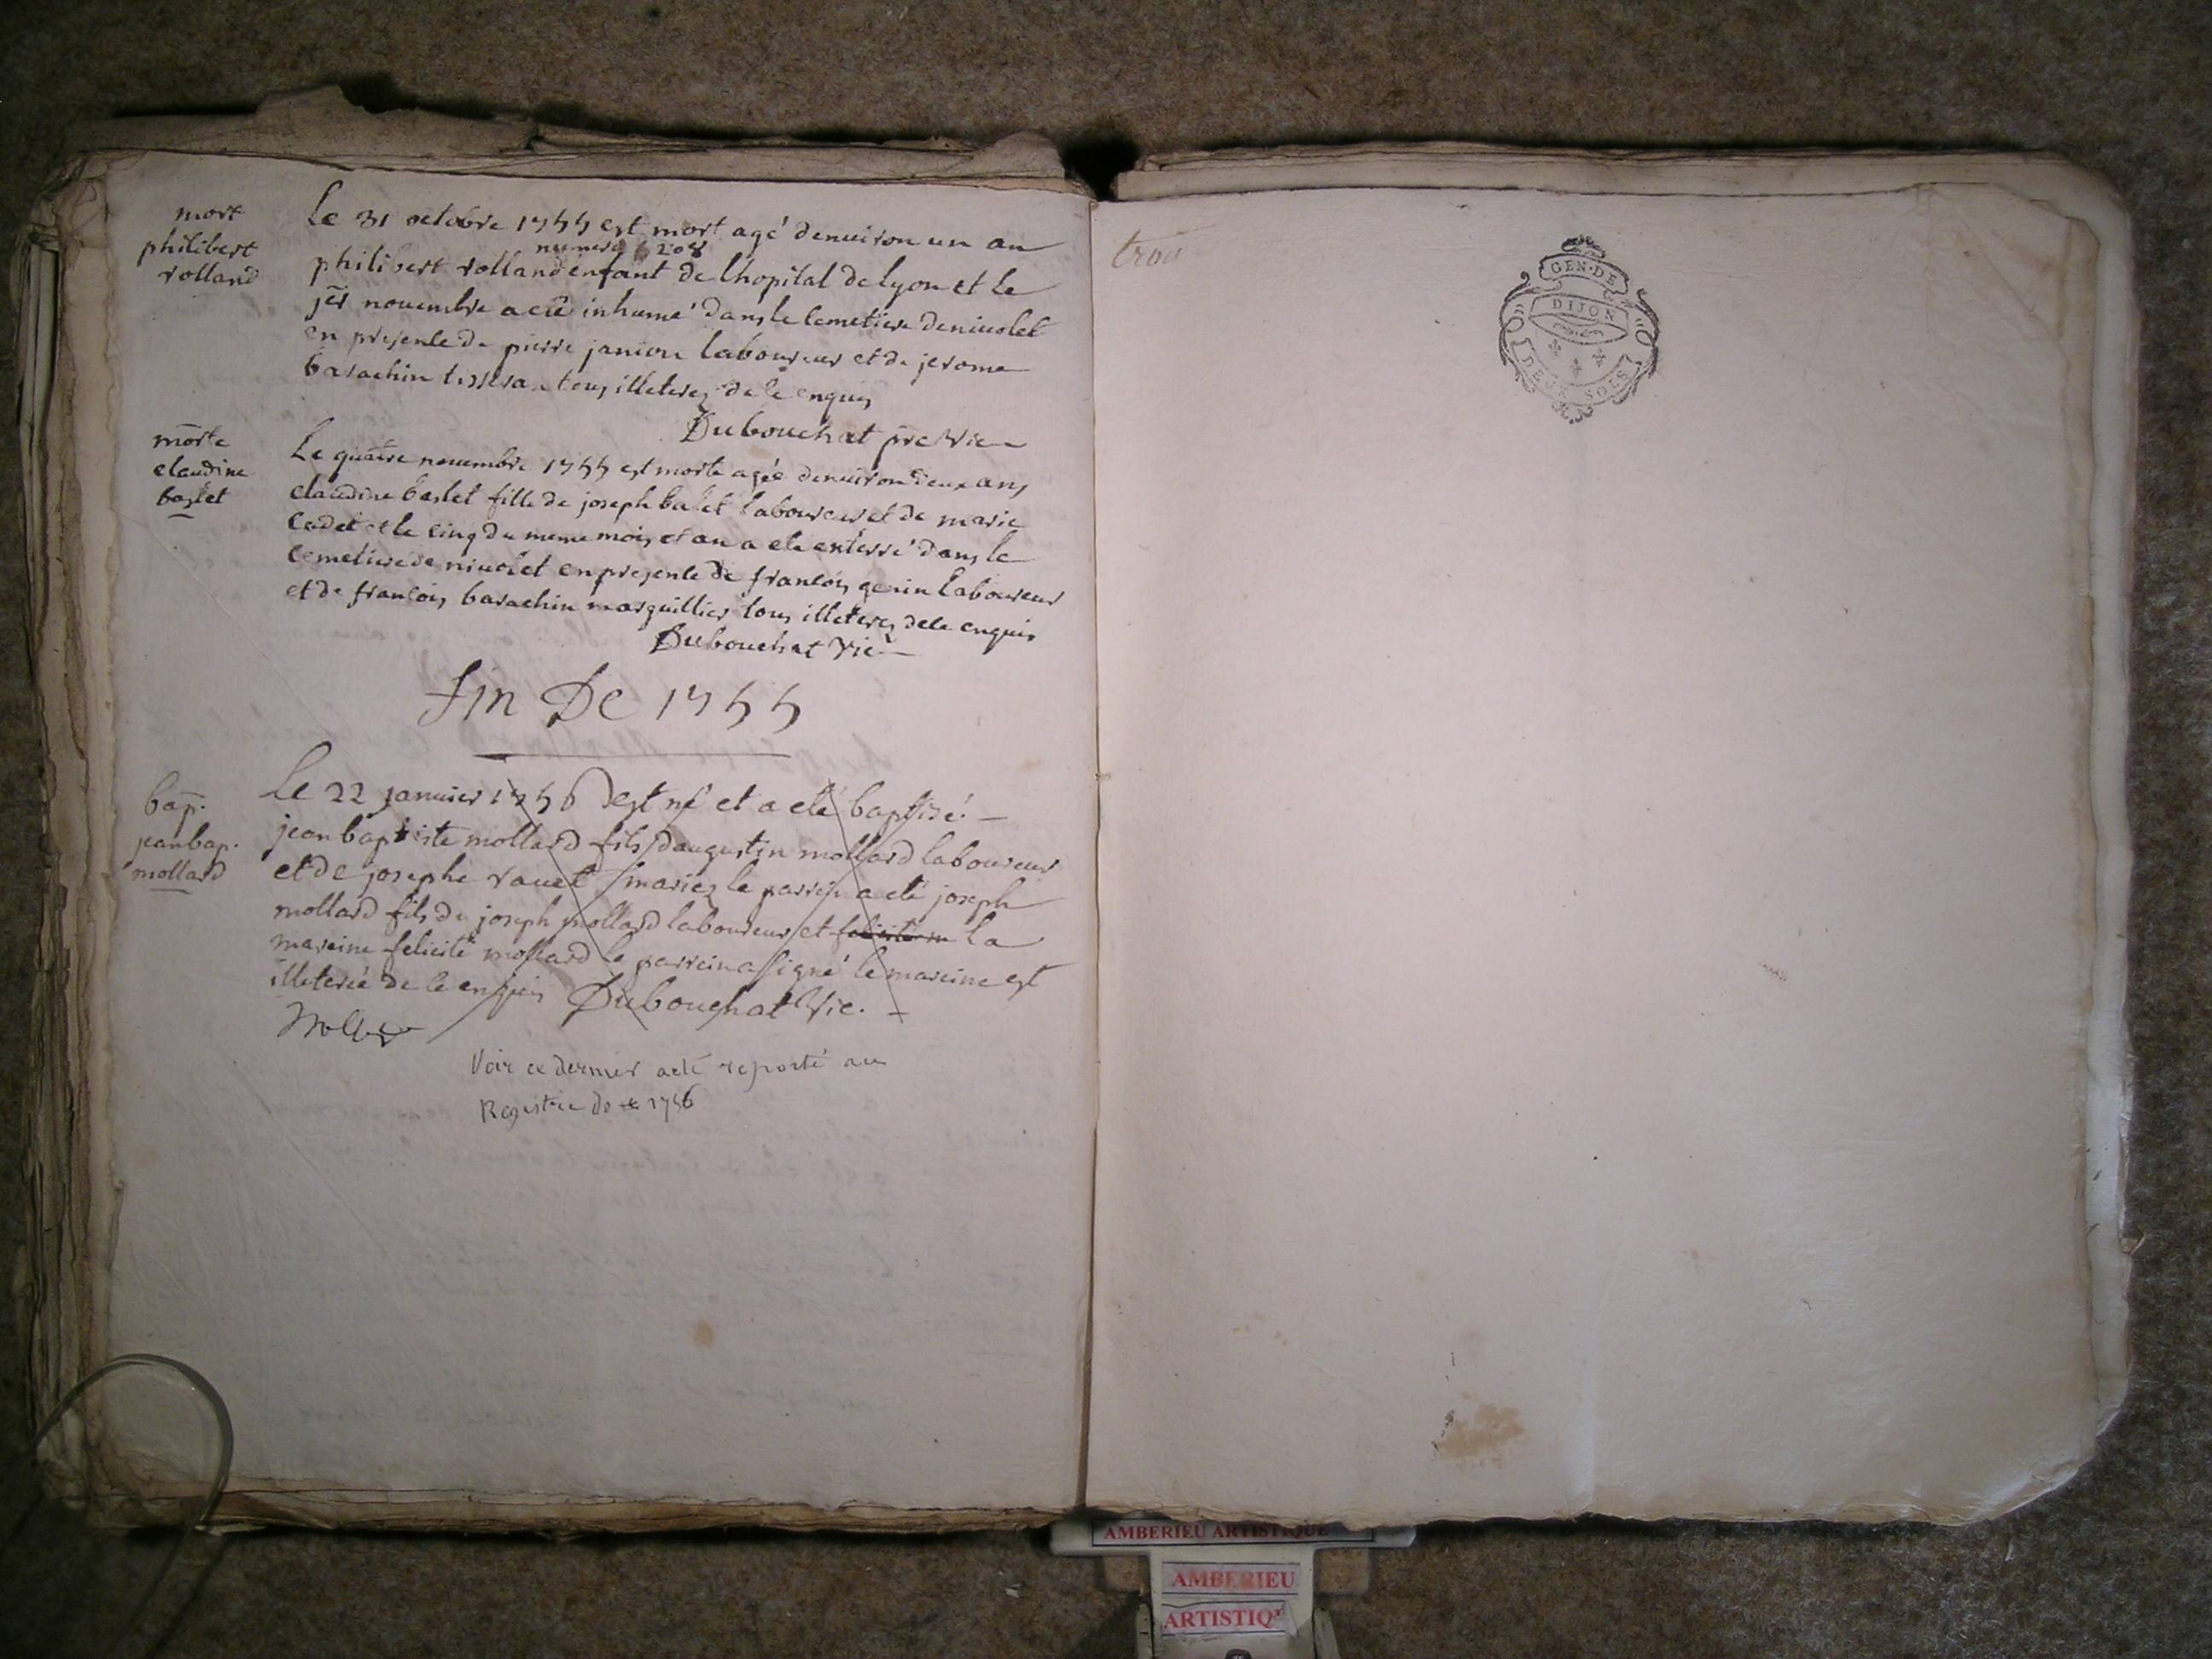 mort
philibert
rolland
Le 31 octobre 1755 est mort agé denuiron un an
numero 208
philibert rolland enfant de lhopital de lyon et le
jer nouembre a eté inhumé dans le cemetiere deniuolet
en presente de pierre janion laboureur et de jerome
barachin tisseran tous illeterez de ce enquis
Dubouchat pre vic
morte
claudine
baslet
Le quatre nouembre 1755 est morte agée denuiron deux ans
claudine baslet fille de joseph balet laboureur et de marie
Cadet et le cinq du meme mois et an a eté enterré dans le
cemetiere de niuolet en presente de francois genin laboureur
et de francois barachin marguillier tous illeterez de ce enquis
Dubouchat vic
fin De 1755
bap.
jean bap.
mollard
Le 22 januier 1756 est né et a eté baptisé
jean baptiste mollard fils daugustin mollard laboureur
et de josephe rauet mariez le parrein a eté joseph
mollard fils du joseph mollard laboureur et felicité m la
mareine felicité mollard le parrein a signé le mareine est
illeterée de ce enquis Dubouchat vic.
Voir ce dernier acte reporté au
Registre de 1756
trois
GEN. DE
DIJON
DEUX SOLS
AMBERIEU ARTISTIQUE
AMBERIEU
ARTISTIQ